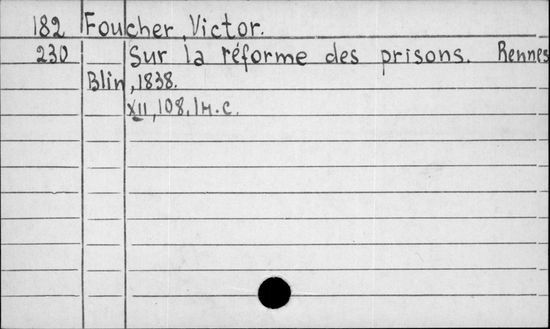 182 Foucher, Victor.
230 Sur la réforme des prisons. Rennes
Blin, 1838.
XII, 108, 1н.с.